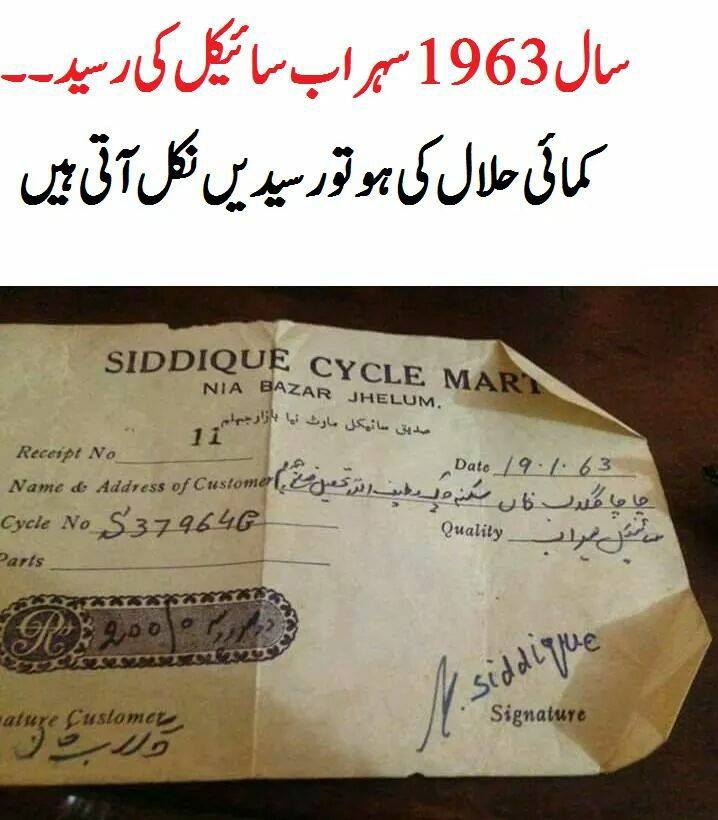 سال 1963 سہراب سائیکل کی رسید۔۔
کمائی حلال کی ہو تو رسیدیں نکل آتی ہیں
SIDDIQUE CYCLE MART
NIA BAZAR JHELUM.
صدیق سائیکل مارٹ نیا بازار جہلم
Receipt No 11
Date 19.1.63
Name & Address of Customer چاچا گلاب خاں سکنہ
Cycle No S37964G
Quality سائیکل سہراب
Parts
Rs 200/0 دو صد روپیہ
N. Siddique
ature Customer
Signature